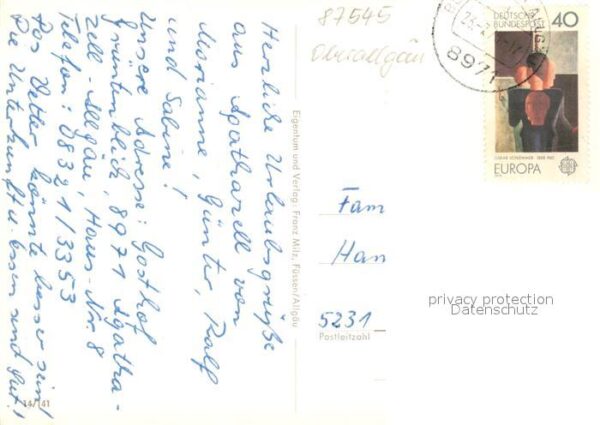 Herzliche Urlaubsgrüße
aus Agathazell von
Marianne, Günter, Ralf
und Sabine!
Unsere Adresse: Gasthof
Grüntenblick, 8971 Agatha-
zell-Allgäu, Haus-Nr. 8
Telefon: 08321/3353
Das Wetter könnte besser sein!
Die Unterkunft u. Essen sind gut!
14/141
Eigentum und Verlag: Franz Milz, Füssen/Allgäu
87545
Oberallgäu
8971
DEUTSCHE
BUNDESPOST
40
OSKAR SCHLEMMER 1888-1943
EUROPA
Fam
Han
5231
Postleitzahl
privacy protection
Datenschutz